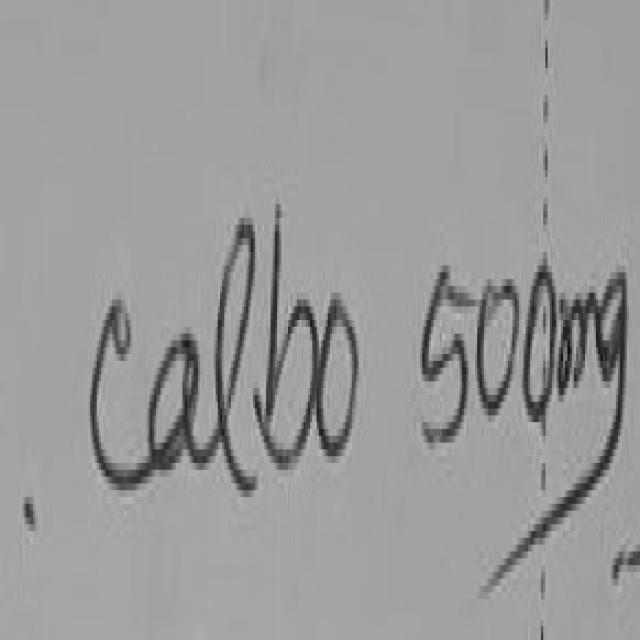 Calbo 500mg